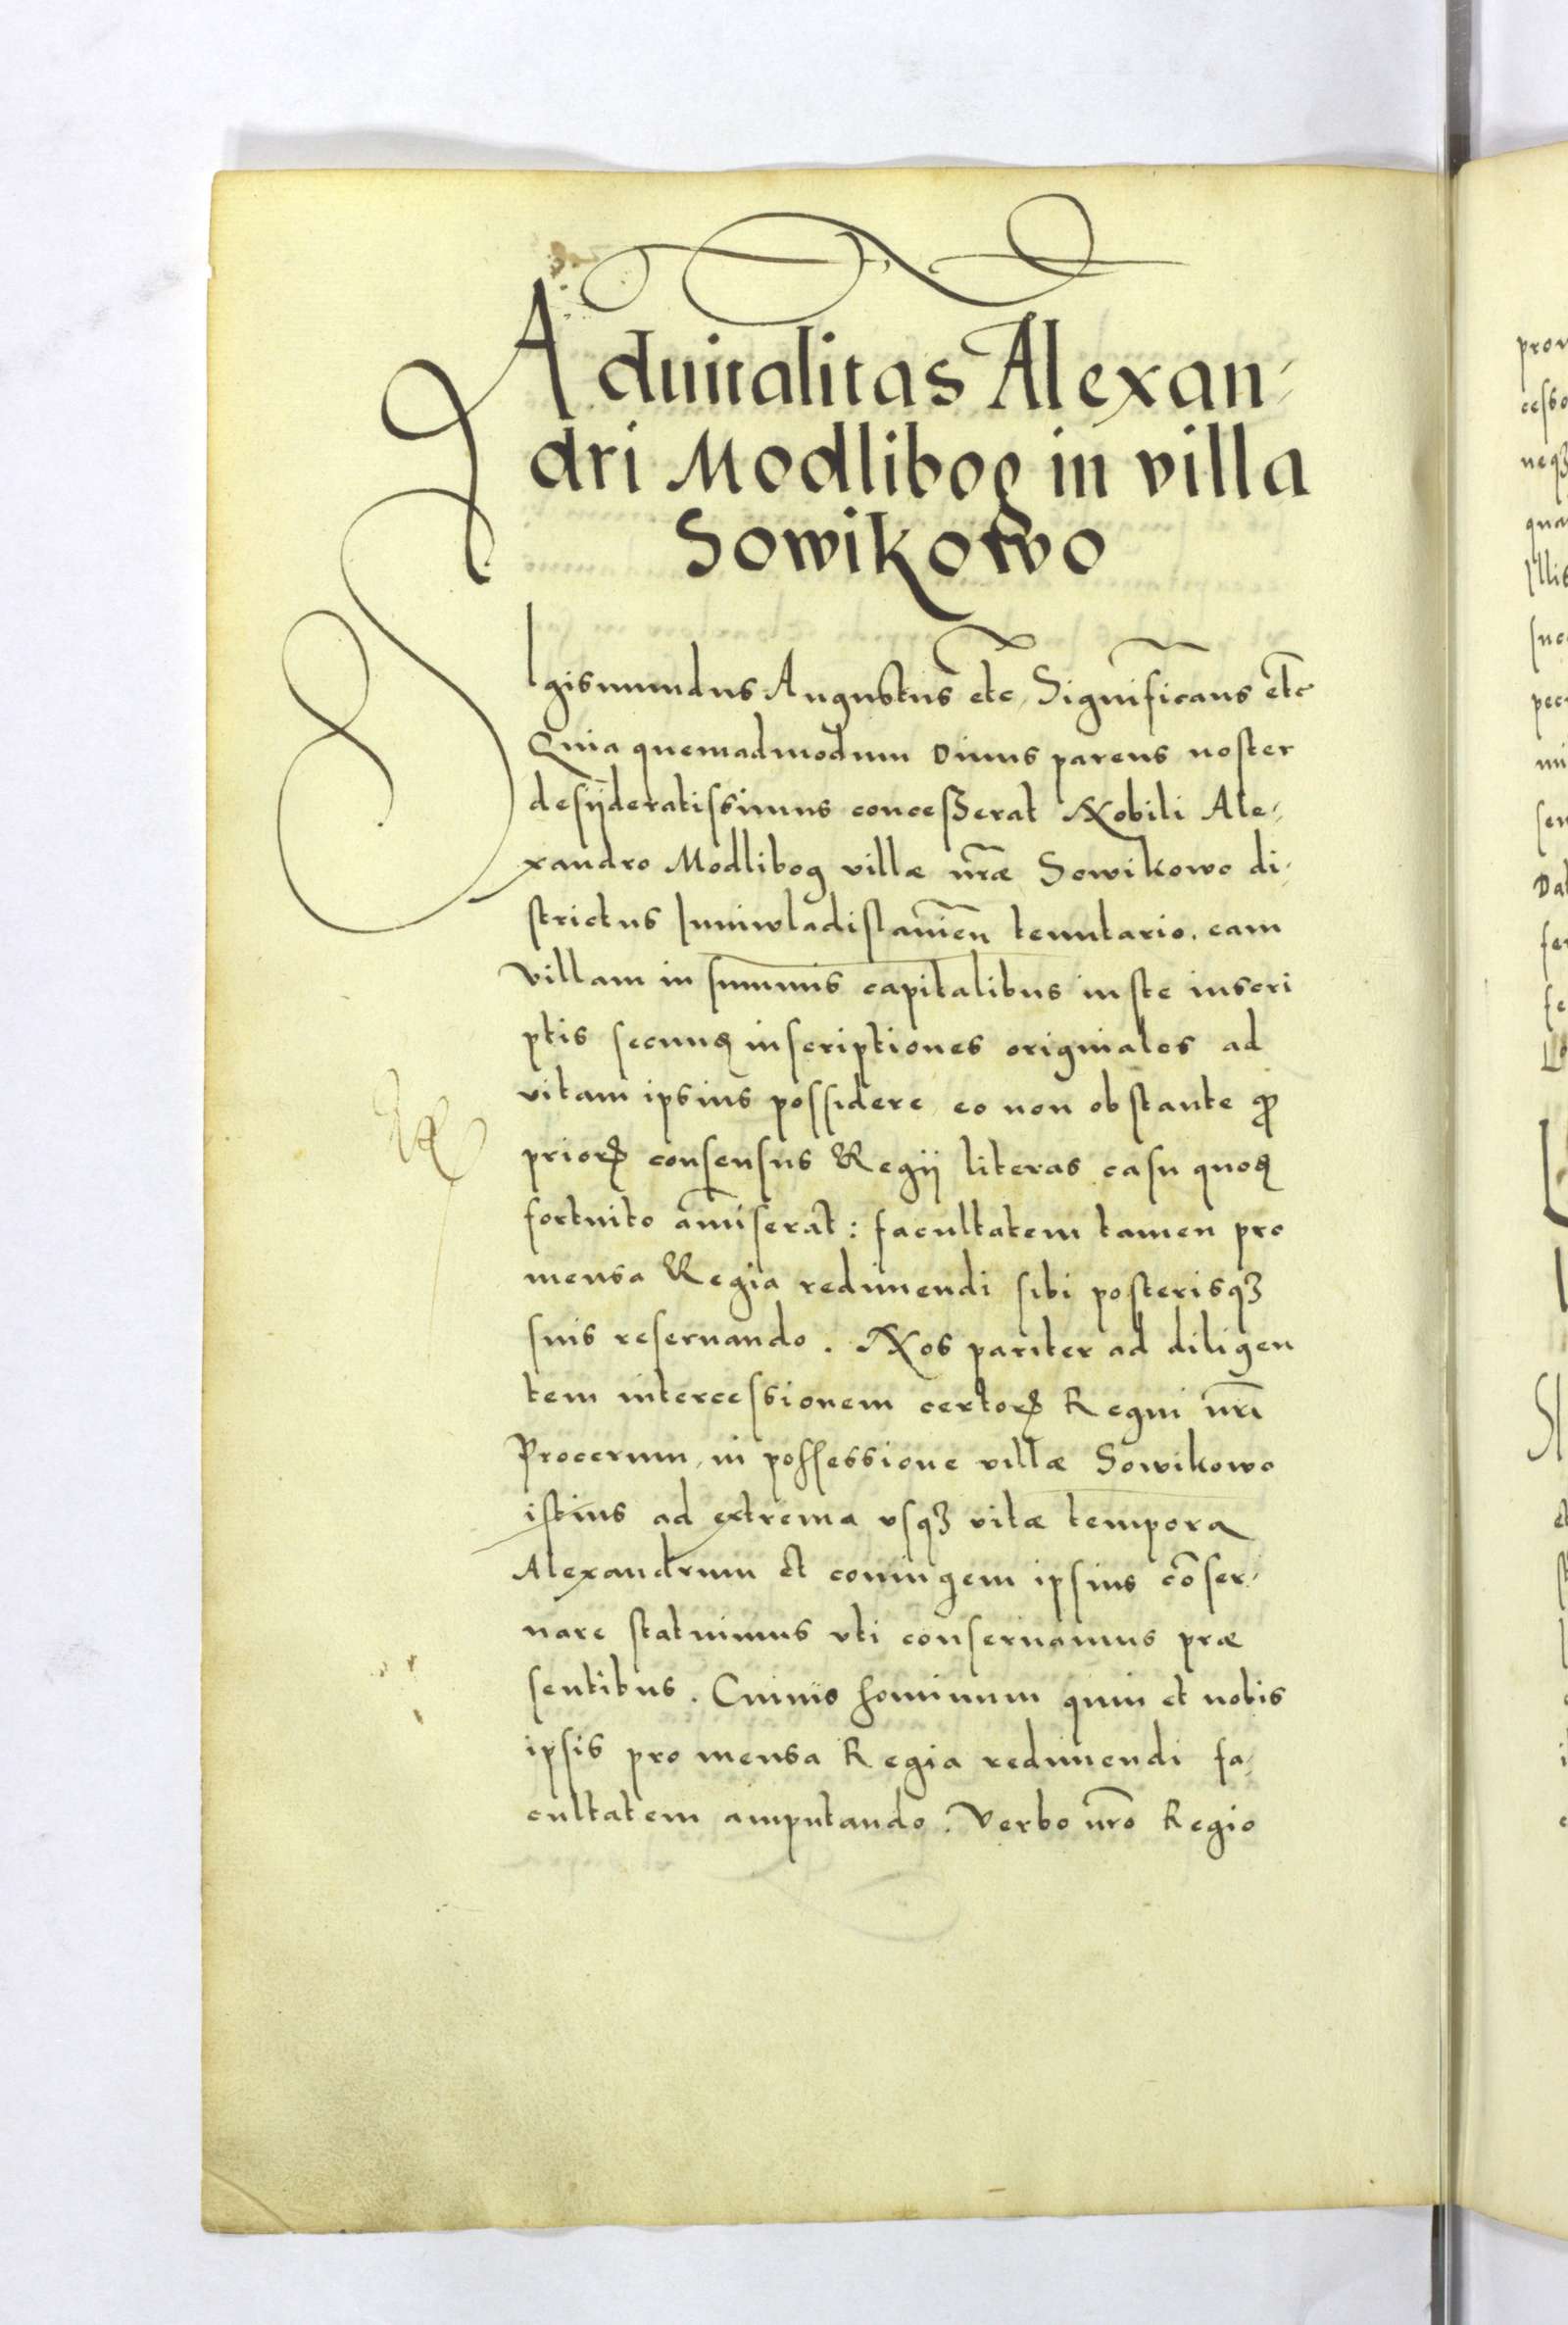 Aduitalitas Alexan-
dri Modlibog in villa
Sowikowo
SIgismundus Augustus etc, Significans etc
Quia quemadmodum Diuus parens noster
desÿderatissimus conceßerat Nobili Ale-
xandro Modlibog villæ nr̃æ Sowikowo di-
strictus Iuniwladislauien̄ tenutario. eam
villam in summis capitalibus iuste inscri
ptis secunđ inscriptiones originales ad
vitam ipsius possidere, eo non obstante ꝙ
priorꝝ consensus Regij literas casu quođ
fortuito amiserat: facultatem tamen pro
mensa Regia redimendi sibi posterisqꝫ
suis reseruando. Nos pariter ad diligen
tem intercessionem certorꝝ Regni nr̃i
Procerum, in possessione villæ Sowikowo
istius ad extrema vsqꝫ vitæ tempora
Alexandrum et coniugem ipsius cõser-
uare statuimus vti conseruamus præ
sentibus. Cuiuis hominum quin et nobis
ipsis pro mensa Regia redimendi fa-
cultatem amputando. Verbo nr̃o Regio